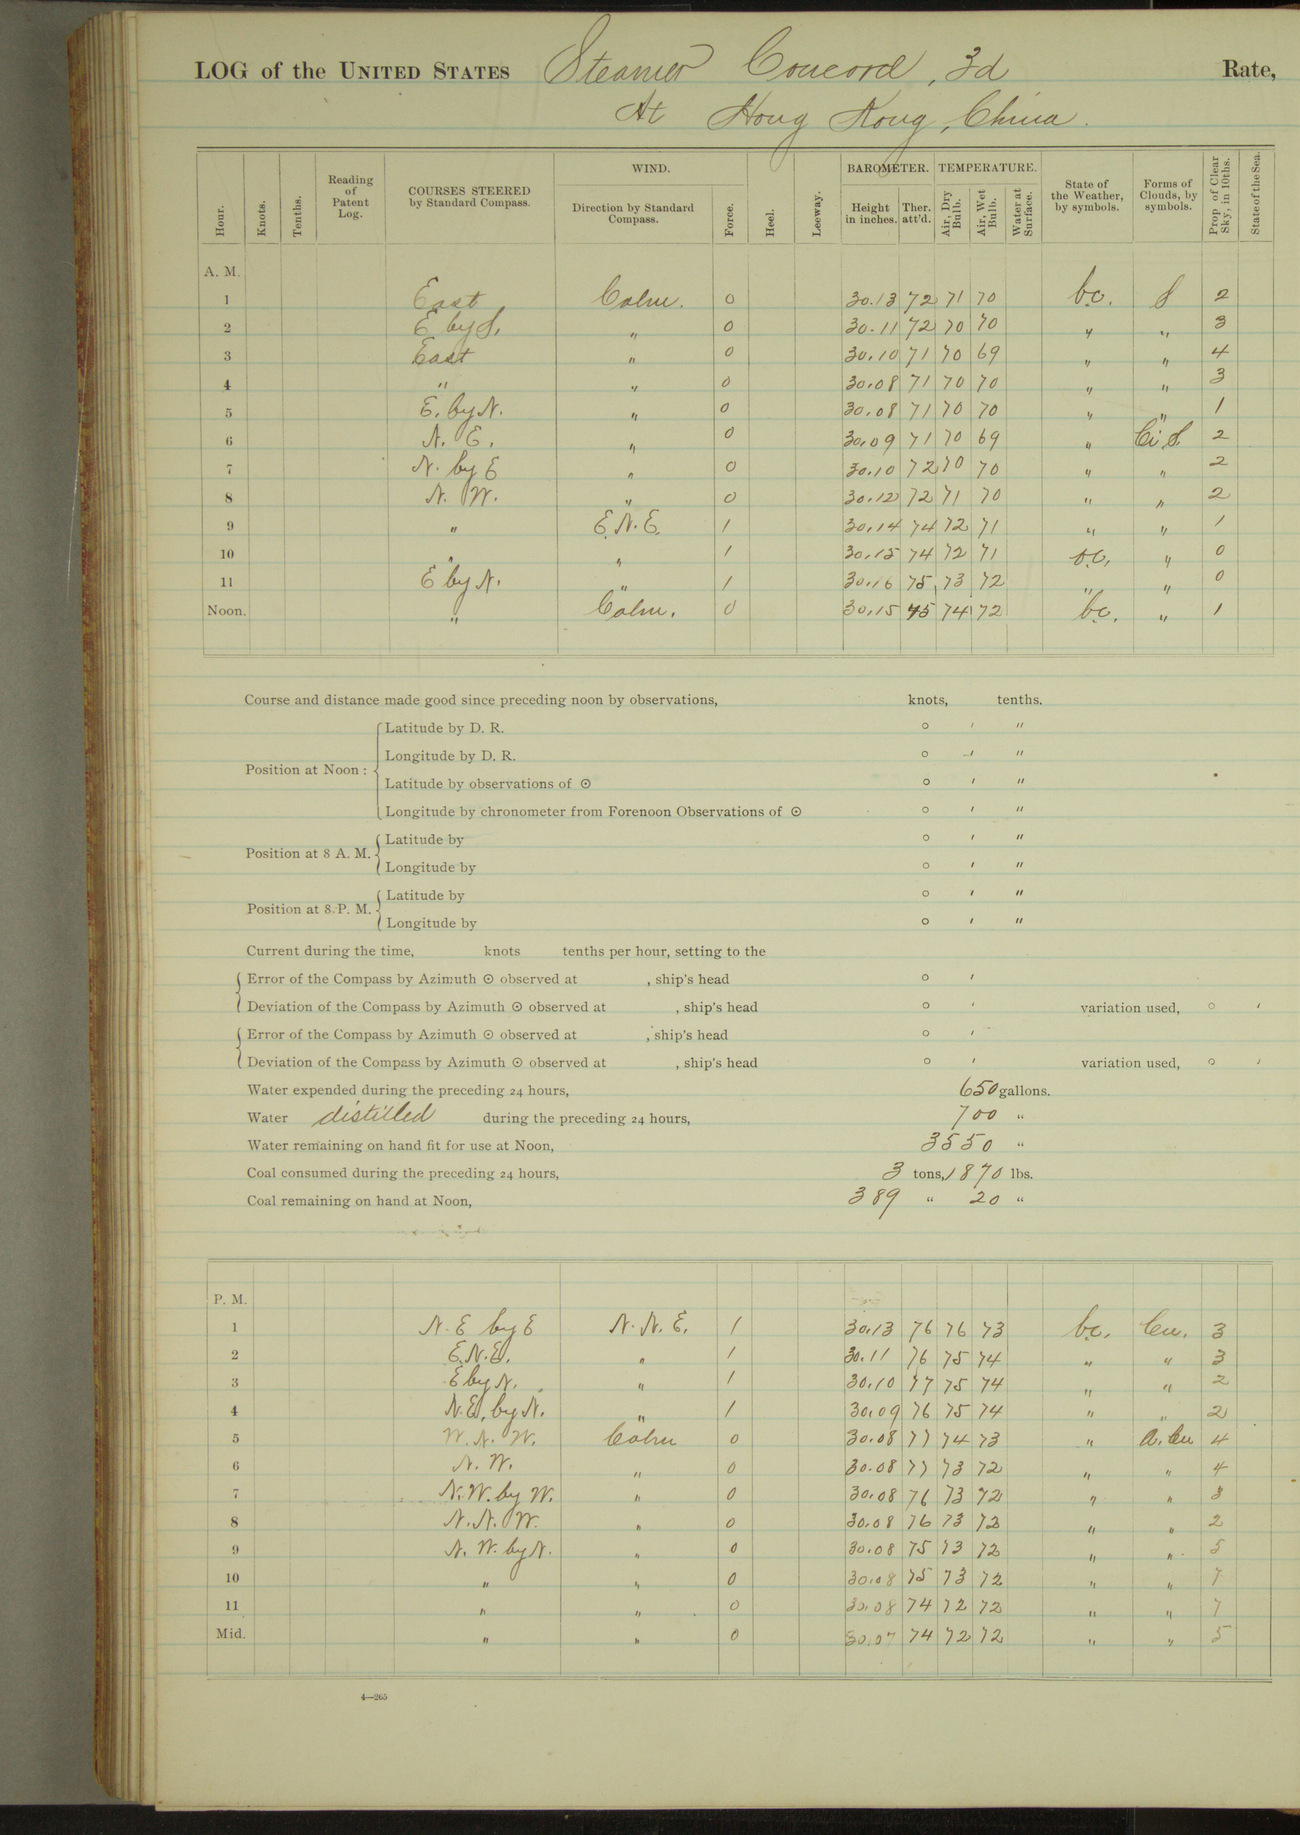 LOG of the UNITED STATES Steamer Concord, 3d Rate,
At Hong Kong, China.
Hour. Knots. Tenths. Reading of Patent Log. COURSES STEERED by Standard Compass. WIND. Direction by Standard Compass. Force. Heel. Leeway. BAROMETER. Height in inches. Ther. att'd. TEMPERATURE. Air, Dry Bulb. Air, Wet Bulb. Water at Surface. State of the Weather, by symbols. Forms of Clouds, by symbols. Prop. of Clear Sky, in 10ths. State of the Sea.
A. M.
1 East Calm. 0 30.13 72 71 70 b.c. S 2
2 E by S. " 0 30.11 72 70 70 " " 3
3 East " 0 30.10 71 70 69 " " 4
4 " " 0 30.08 71 70 70 " " 3
5 E. by N. " 0 30.08 71 70 70 " " 1
6 N. E. " 0 30.09 71 70 69 " Ci.S. 2
7 N. by E " 0 30.10 72 70 70 " " 2
8 N. W. " 0 30.12 72 71 70 " " 2
9 " E.N.E. 1 30.14 74 72 71 " " 1
10 " " 1 30.15 74 72 71 o.c. " 0
11 E by N. " 1 30.16 75 73 72 " " 0
Noon. " Calm. 0 30.15 75 74 72 b.c. " 1
Course and distance made good since preceding noon by observations, knots, tenths.
Position at Noon: Latitude by D. R. ° ' "
Longitude by D. R. ° ' "
Latitude by observations of ⊙ ° ' "
Longitude by chronometer from Forenoon Observations of ⊙ ° ' "
Position at 8 A. M. Latitude by ° ' "
Longitude by ° ' "
Position at 8 P. M. Latitude by ° ' "
Longitude by ° ' "
Current during the time, knots tenths per hour, setting to the
Error of the Compass by Azimuth ⊙ observed at , ship's head ° '
Deviation of the Compass by Azimuth ⊙ observed at , ship's head ° ' variation used, ° '
Error of the Compass by Azimuth ⊙ observed at , ship's head ° '
Deviation of the Compass by Azimuth ⊙ observed at , ship's head ° ' variation used, ° '
Water expended during the preceding 24 hours, 650 gallons.
Water distilled during the preceding 24 hours, 700 "
Water remaining on hand fit for use at Noon, 3550 "
Coal consumed during the preceding 24 hours, 3 tons, 1870 lbs.
Coal remaining on hand at Noon, 389 " 20 "
P. M.
1 N. E by E N. N. E. 1 30.13 76 76 73 b.c. Cu. 3
2 E.N.E. " 1 30.11 76 75 74 " " 3
3 E by N. " 1 30.10 77 75 74 " " 2
4 N.E. by N. " 1 30.09 76 75 74 " " 2
5 W. N. W. Calm 0 30.08 77 74 73 " A. Cu 4
6 N. W. " 0 30.08 77 73 72 " " 4
7 N. W. by W. " 0 30.08 76 73 72 " " 3
8 N. N. W. " 0 30.08 76 73 72 " " 2
9 N. W. by N. " 0 30.08 75 73 72 " " 5
10 " " 0 30.08 75 73 72 " " 7
11 " " 0 30.08 74 72 72 " " 7
Mid. " " 0 30.07 74 72 72 " " 5
4—265